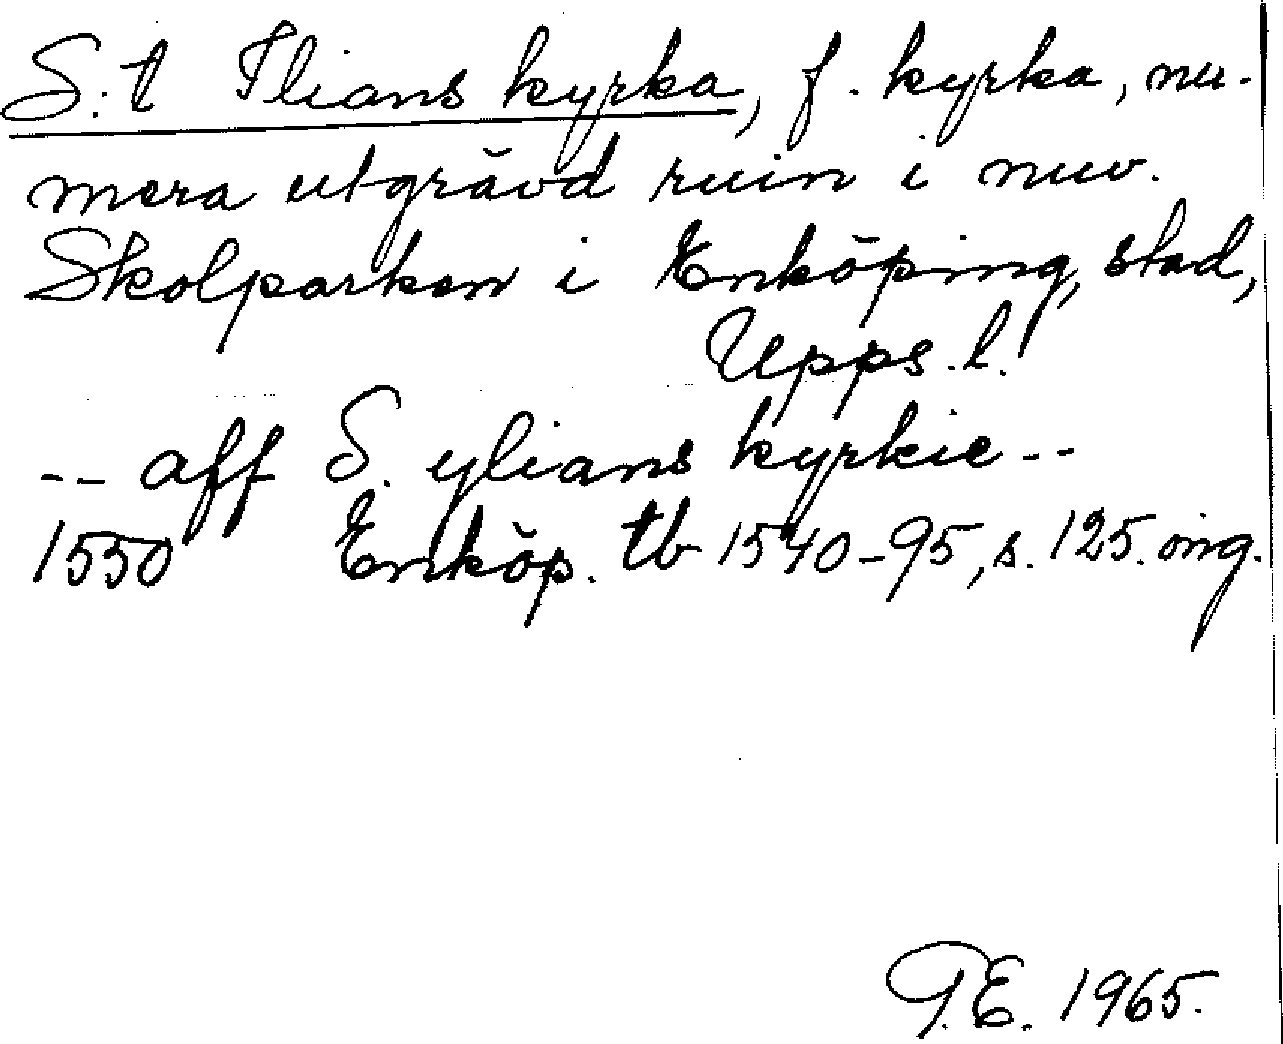 S:t Ilians kyrka, f. kyrka, nu-
mera utgrävd ruin i nuv.
Skolparken i Enköping, stad,
Upps. l.
-- aff S. ylians kyrkie --
1550 Enköp. tb 1540-95, s. 125. ing.
G.E. 1965.